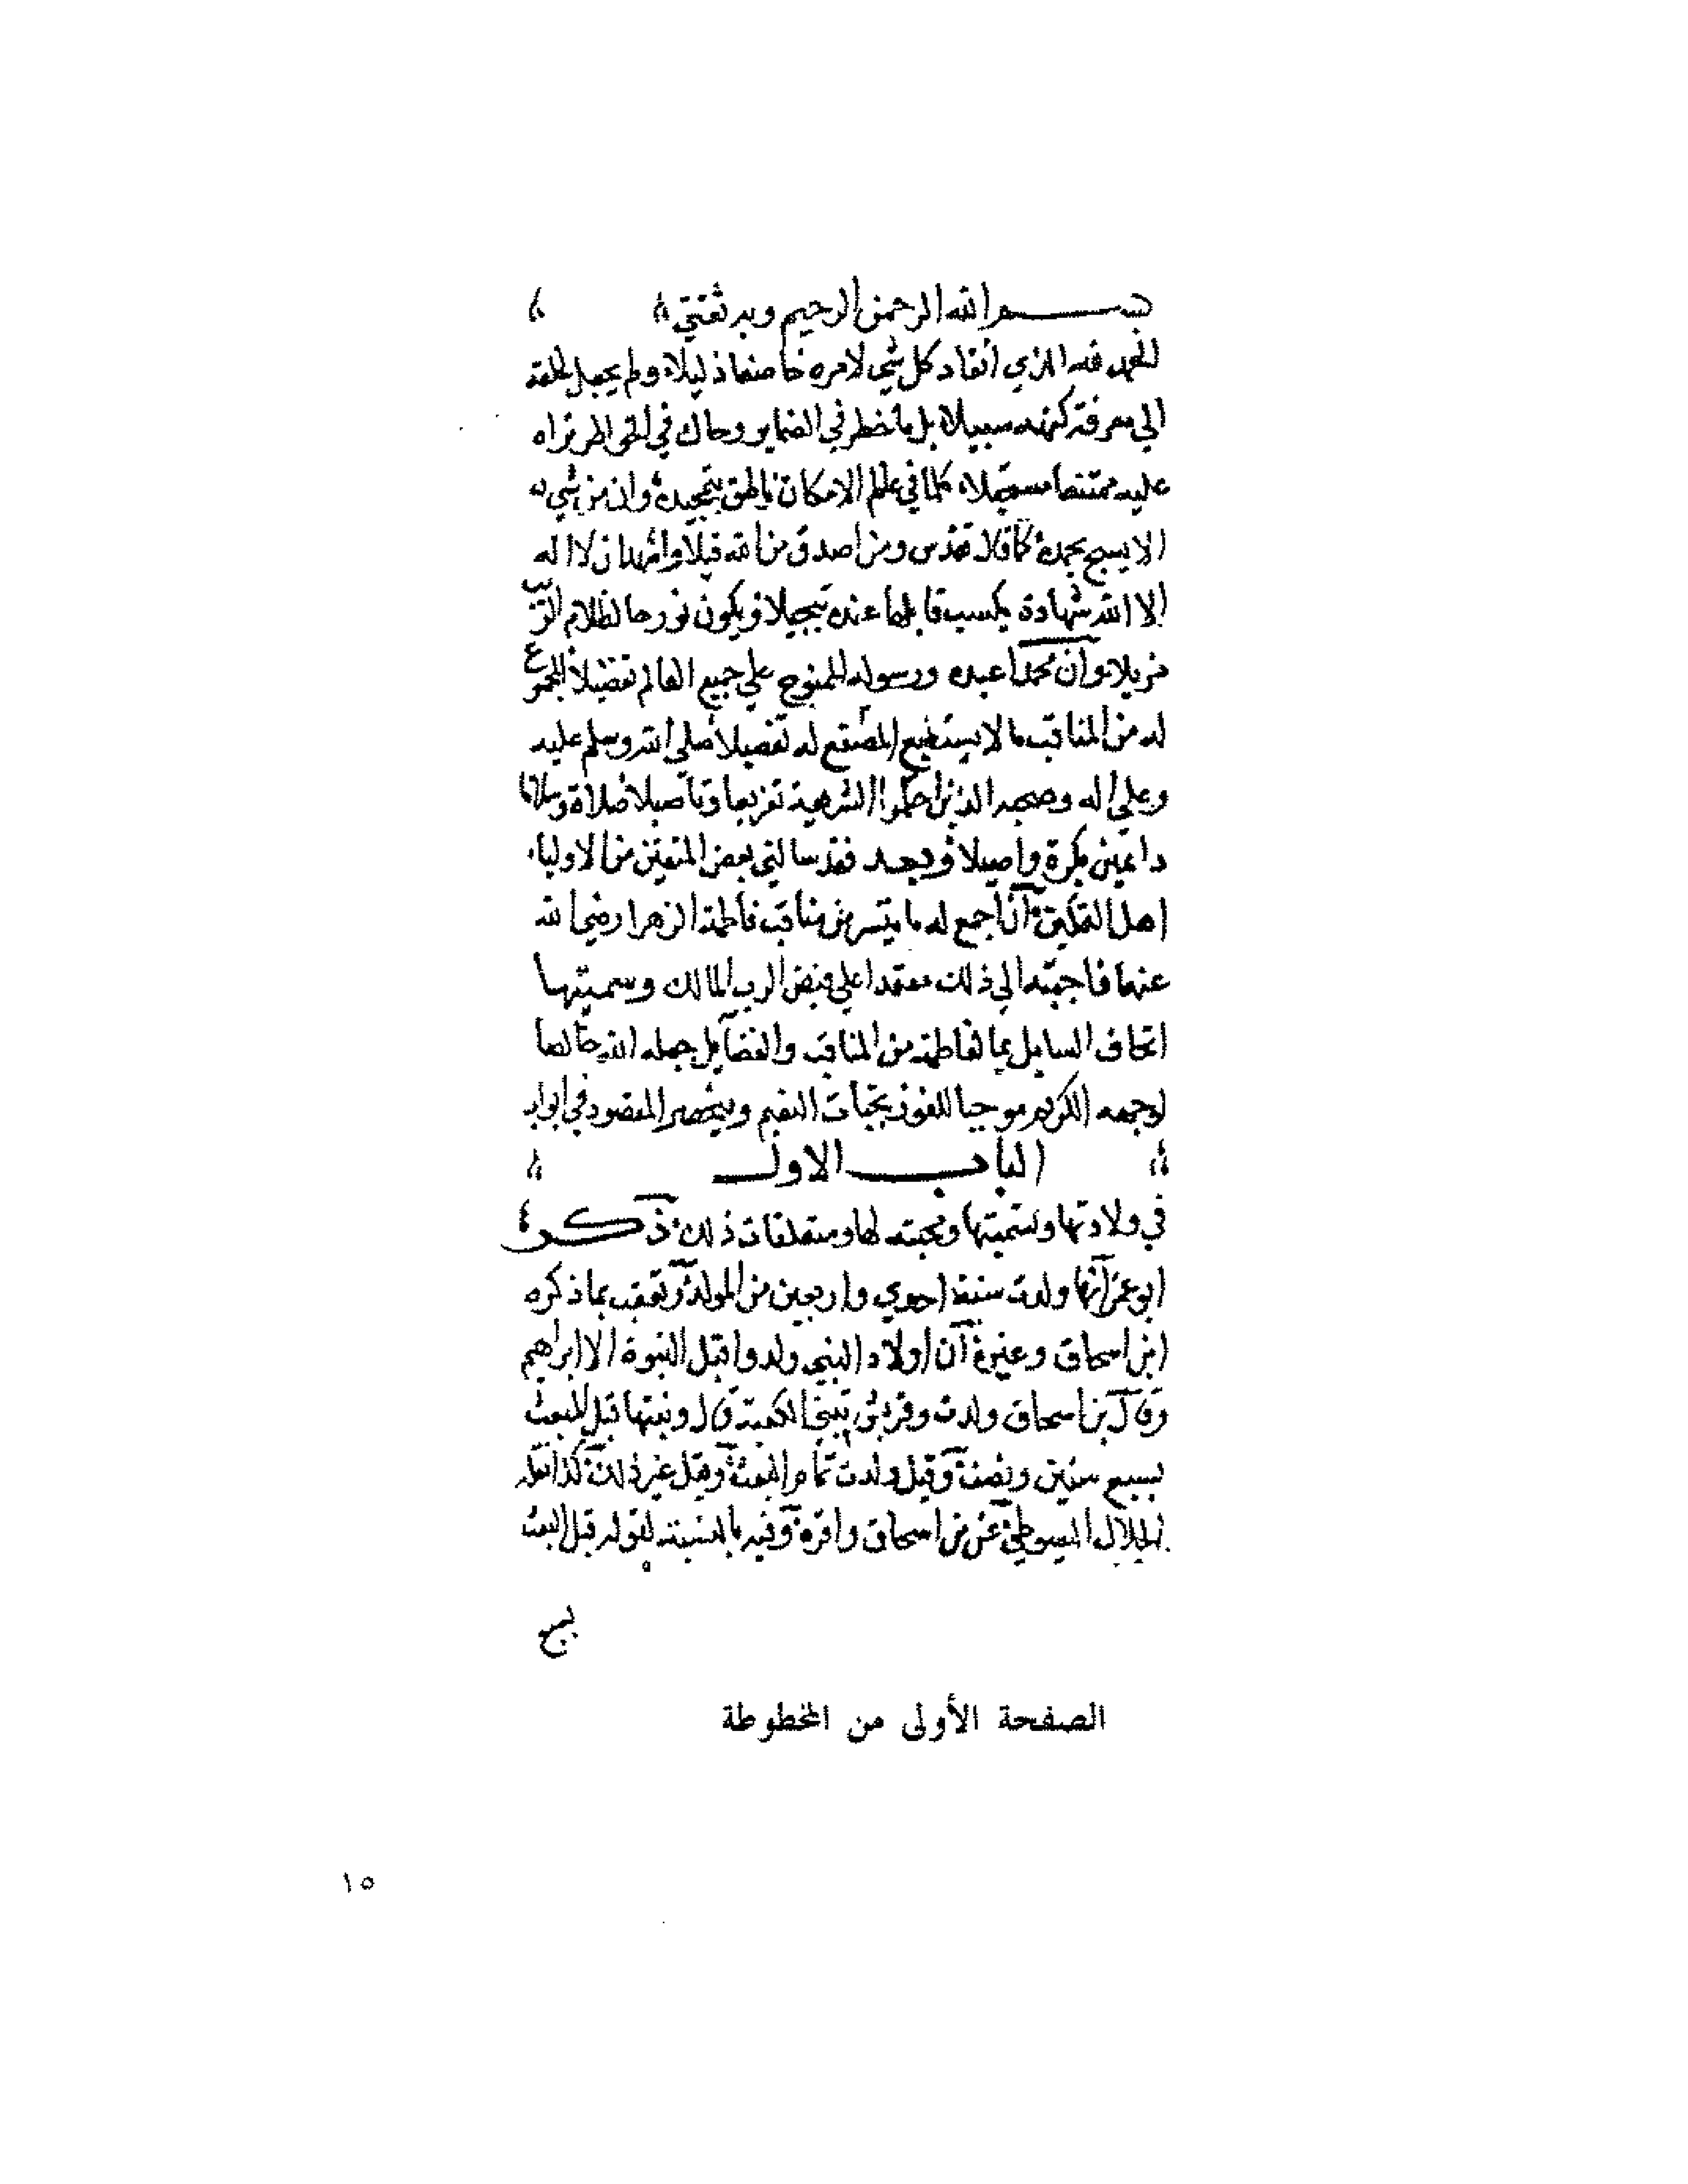 بسم الله الرحمن الرحيم وبه ثقتي
الحمد لله الذي انقاد كل شي لامره خاضعا ذليلا ولم يجعل لخلقه
الي معرفة كنهه سبيلا بل ما خطر في الضماير وحاك في الخواطر نراه
عليه ممتنعا مستحيلا كلما في عالم الامكان ناطق بتمجيده وان من شي
الا يسبح بحمده كما قال تقدس ومن اصدق من الله قيلا واشهد ان لا اله
الا الله شهادة يكسب قايلها عنده تبجيلا ويكون نورها لظلام الترب
مزيلا وان محمدا عبده ورسوله الممنوح علي جميع العالم تفضيلا المجموع
له من المناقب ما لا يستطيع المصقع له تفصيلا صلي الله وسلم عليه
وعلي اله وصحبه الذين احكموا الشريعة تفريعا وتاصيلا صلاة وسلاما
دايمين بكرة واصيلا وبعد فقد سالني بعض المتقين من الاوليا
اهل التمكين ان اجمع له ما يتسر من مناقب فاطمة الزهرا رضي الله
عنها فاجبته الي ذلك معتمدا علي فيض الرب المالك وسميتها
اتحاف السايل بما لفاطمة من المناقب والفضايل جعله الله خالصا
لوجهه الكريم موجبا للفوز بجنات النعيم وينحصر المقصود في ابواب
الباب الاول
في ولادتها وتسميتها ومحبته لها ومتعلقات ذلك ذكر
ابو عمر انها ولدت سنة احدي واربعين من المولد وتعقب بما ذكره
ابن اسحاق وغيره ان اولاد النبي ولدوا قبل النبوة الا ابراهيم
وقال بن اسحاق ولدت وقريش تبني الكعبة قال وبنتها قبل المبعث
بسبع سنين ونصف وقيل ولدت عام المبعث وقيل غير ذلك كذا نقله
الجلال السيوطي عن بن اسحاق واقره وفيه بالنسبة لقوله قبل البعث
بسبع
الصفحة الأولى من المخطوطة
١٥